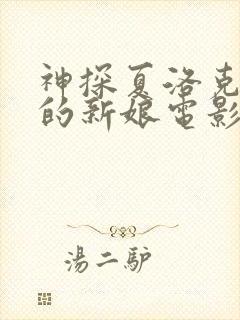 神探夏洛克
的新娘电影
湯二驴